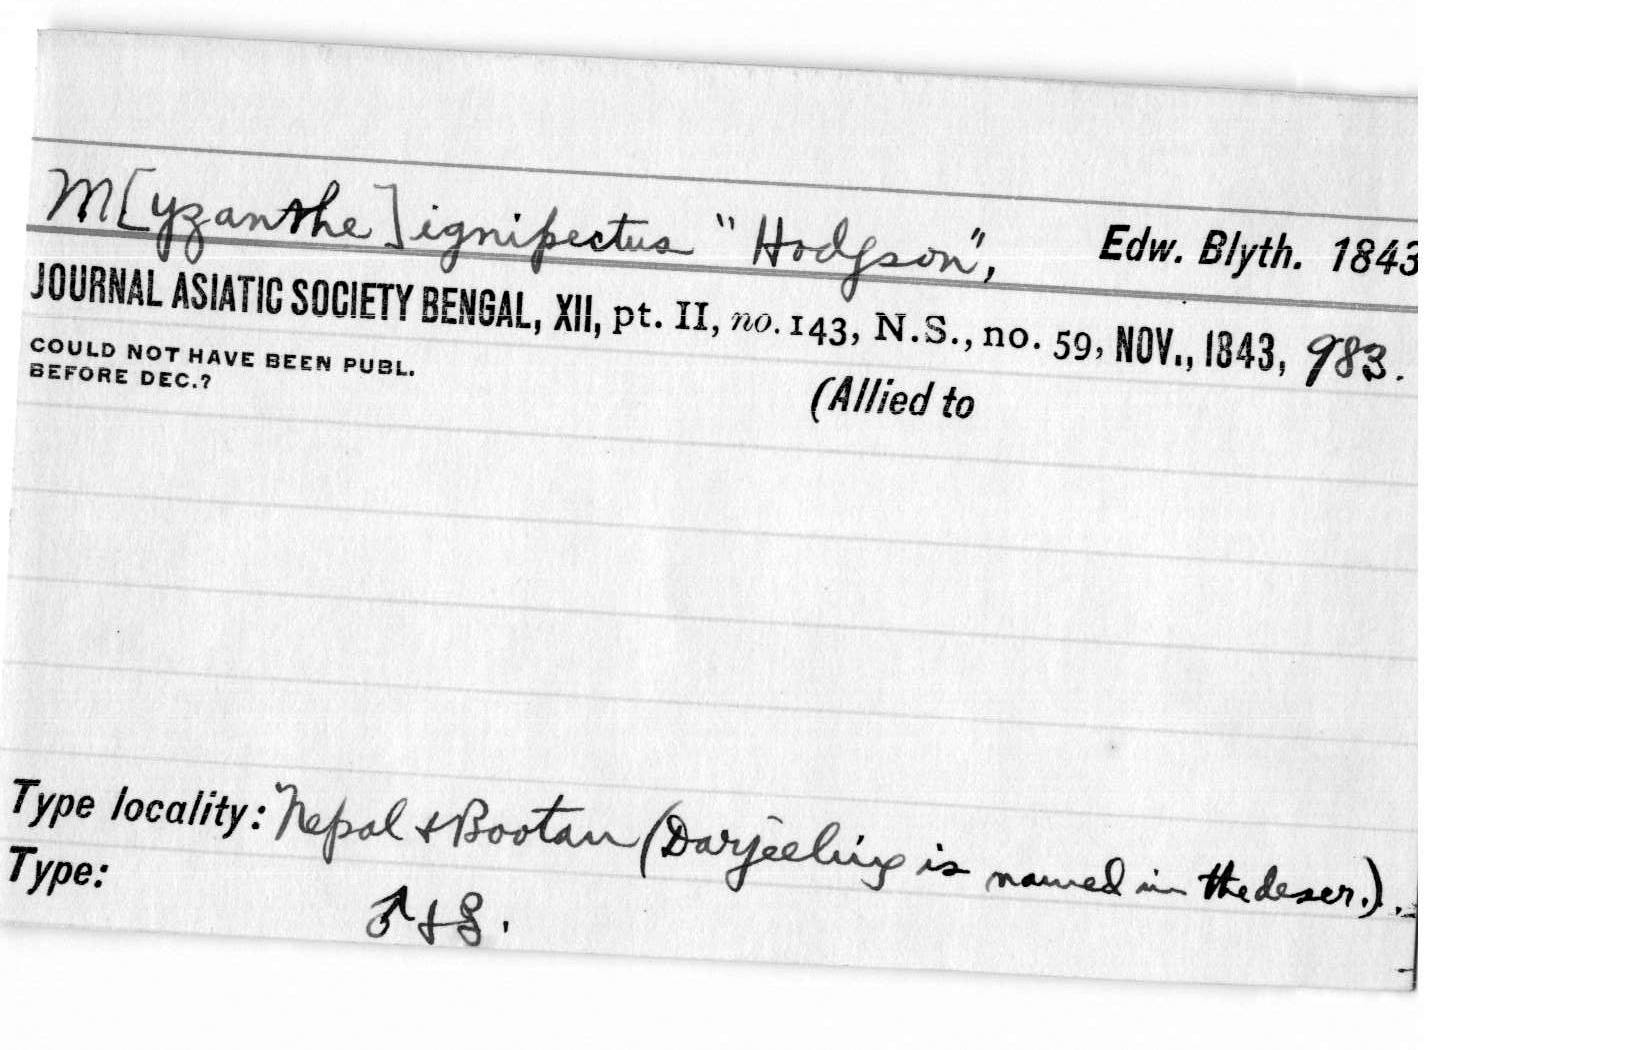 M[yzanthe] ignipectus "Hodgson", Edw. Blyth. 1843
JOURNAL ASIATIC SOCIETY BENGAL, XII, pt. II, no. 143, N.S., no. 59, NOV., 1843, 983.
COULD NOT HAVE BEEN PUBL.
BEFORE DEC.?
(Allied to
Type locality: Nepal & Bootan (Darjeeling is named in the descr.).
Type:
♂ & ♀.